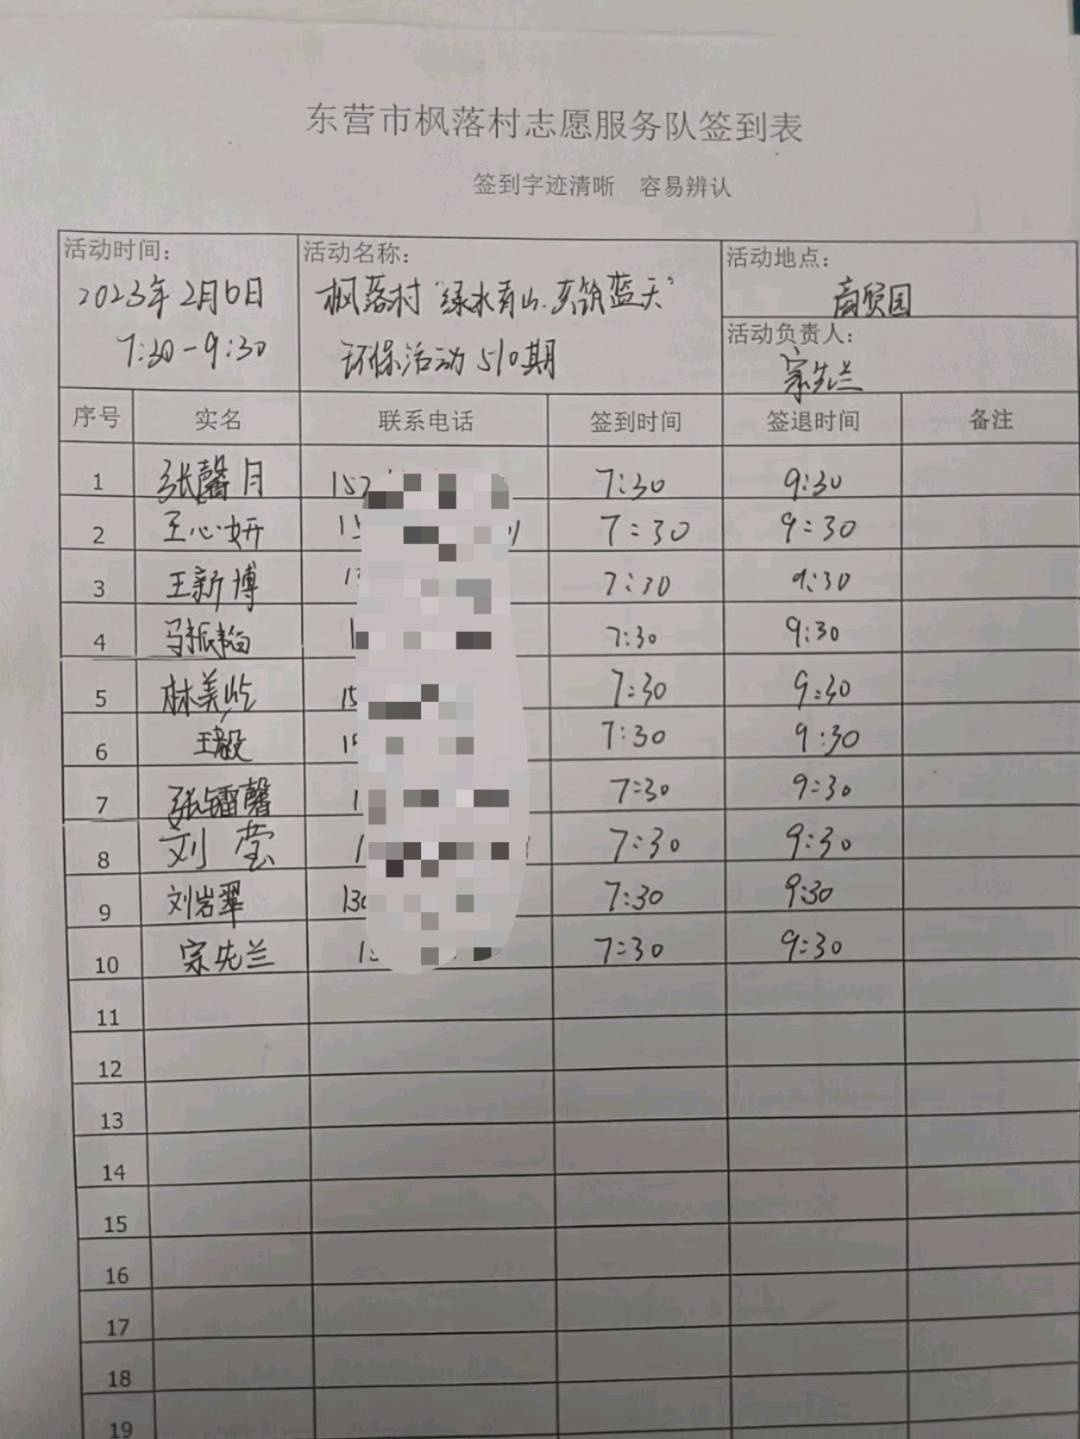 东营市枫落村志愿服务队签到表
签到字迹清晰 容易辨认
活动时间：
2023年2月6日
7:30-9:30
活动名称：
枫落村“绿水青山.共筑蓝天”
环保活动510期
活动地点：
商贸园
活动负责人：
宗先兰
序号 实名 联系电话 签到时间 签退时间 备注
1 张馨月 157 7:30 9:30
2 王心妍 15 7:30 9:30
3 王新博 7:30 9:30
4 马振 1 7:30 9:30
5 林美屹 15 7:30 9:30
6 王毅 7:30 9:30
7 张镭馨 1 7:30 9:30
8 刘莹 1 7:30 9:30
9 刘岩翠 130 7:30 9:30
10 宗先兰 7:30 9:30
11
12
13
14
15
16
17
18
19